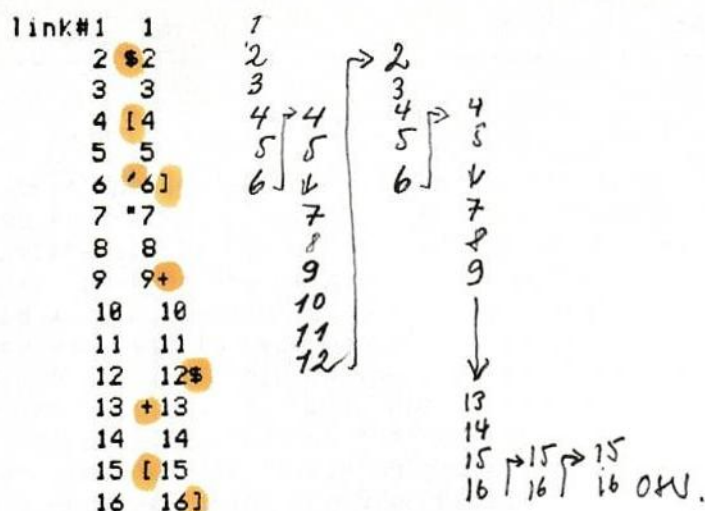 link#1 1
2 $2
3 3
4 [4
5 5
6 ′6]
7 "7
8 8
9 9+
10 10
11 11
12 12$
13 +13
14 14
15 [15
16 16]
1
2
3
4
5
6
4
5
7
8
9
10
11
12
2
3
4
5
6
4
5
7
8
9
13
14
15
16
15
16
15
16 osv.